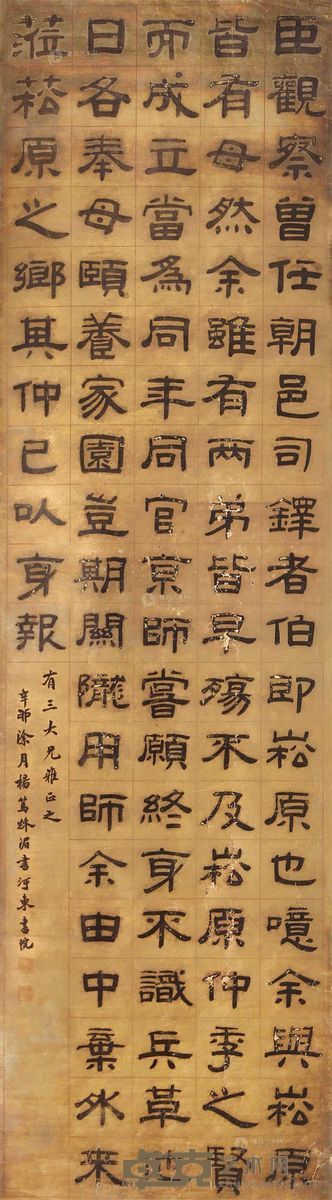 臣觀察曾任朝邑司鐸者伯即崧原也噫余與崧原
皆有母然余雖有兩弟皆早殤不及崧原仲季之賢
而成立當為同年同官京師嘗願終身不識兵革廿
日各奉母頤養家園豈期關隴用師余由中棄外來
蒞菘原之鄉其仲已以身報
有三大兄雅正之
辛卯涂月楊篤
書河東書院